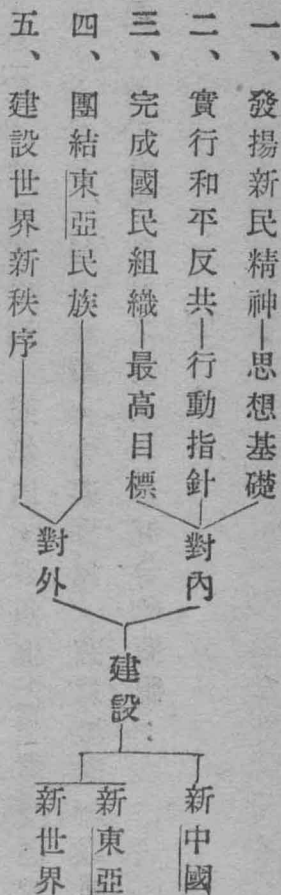 一、發揚新民精神—思想基礎
二、實行和平反共—行動指針
三、完成國民組織—最高目標
四、團結東亞民族
五、建設世界新秩序
對內
對外
建設
新中國
新東亞
新世界